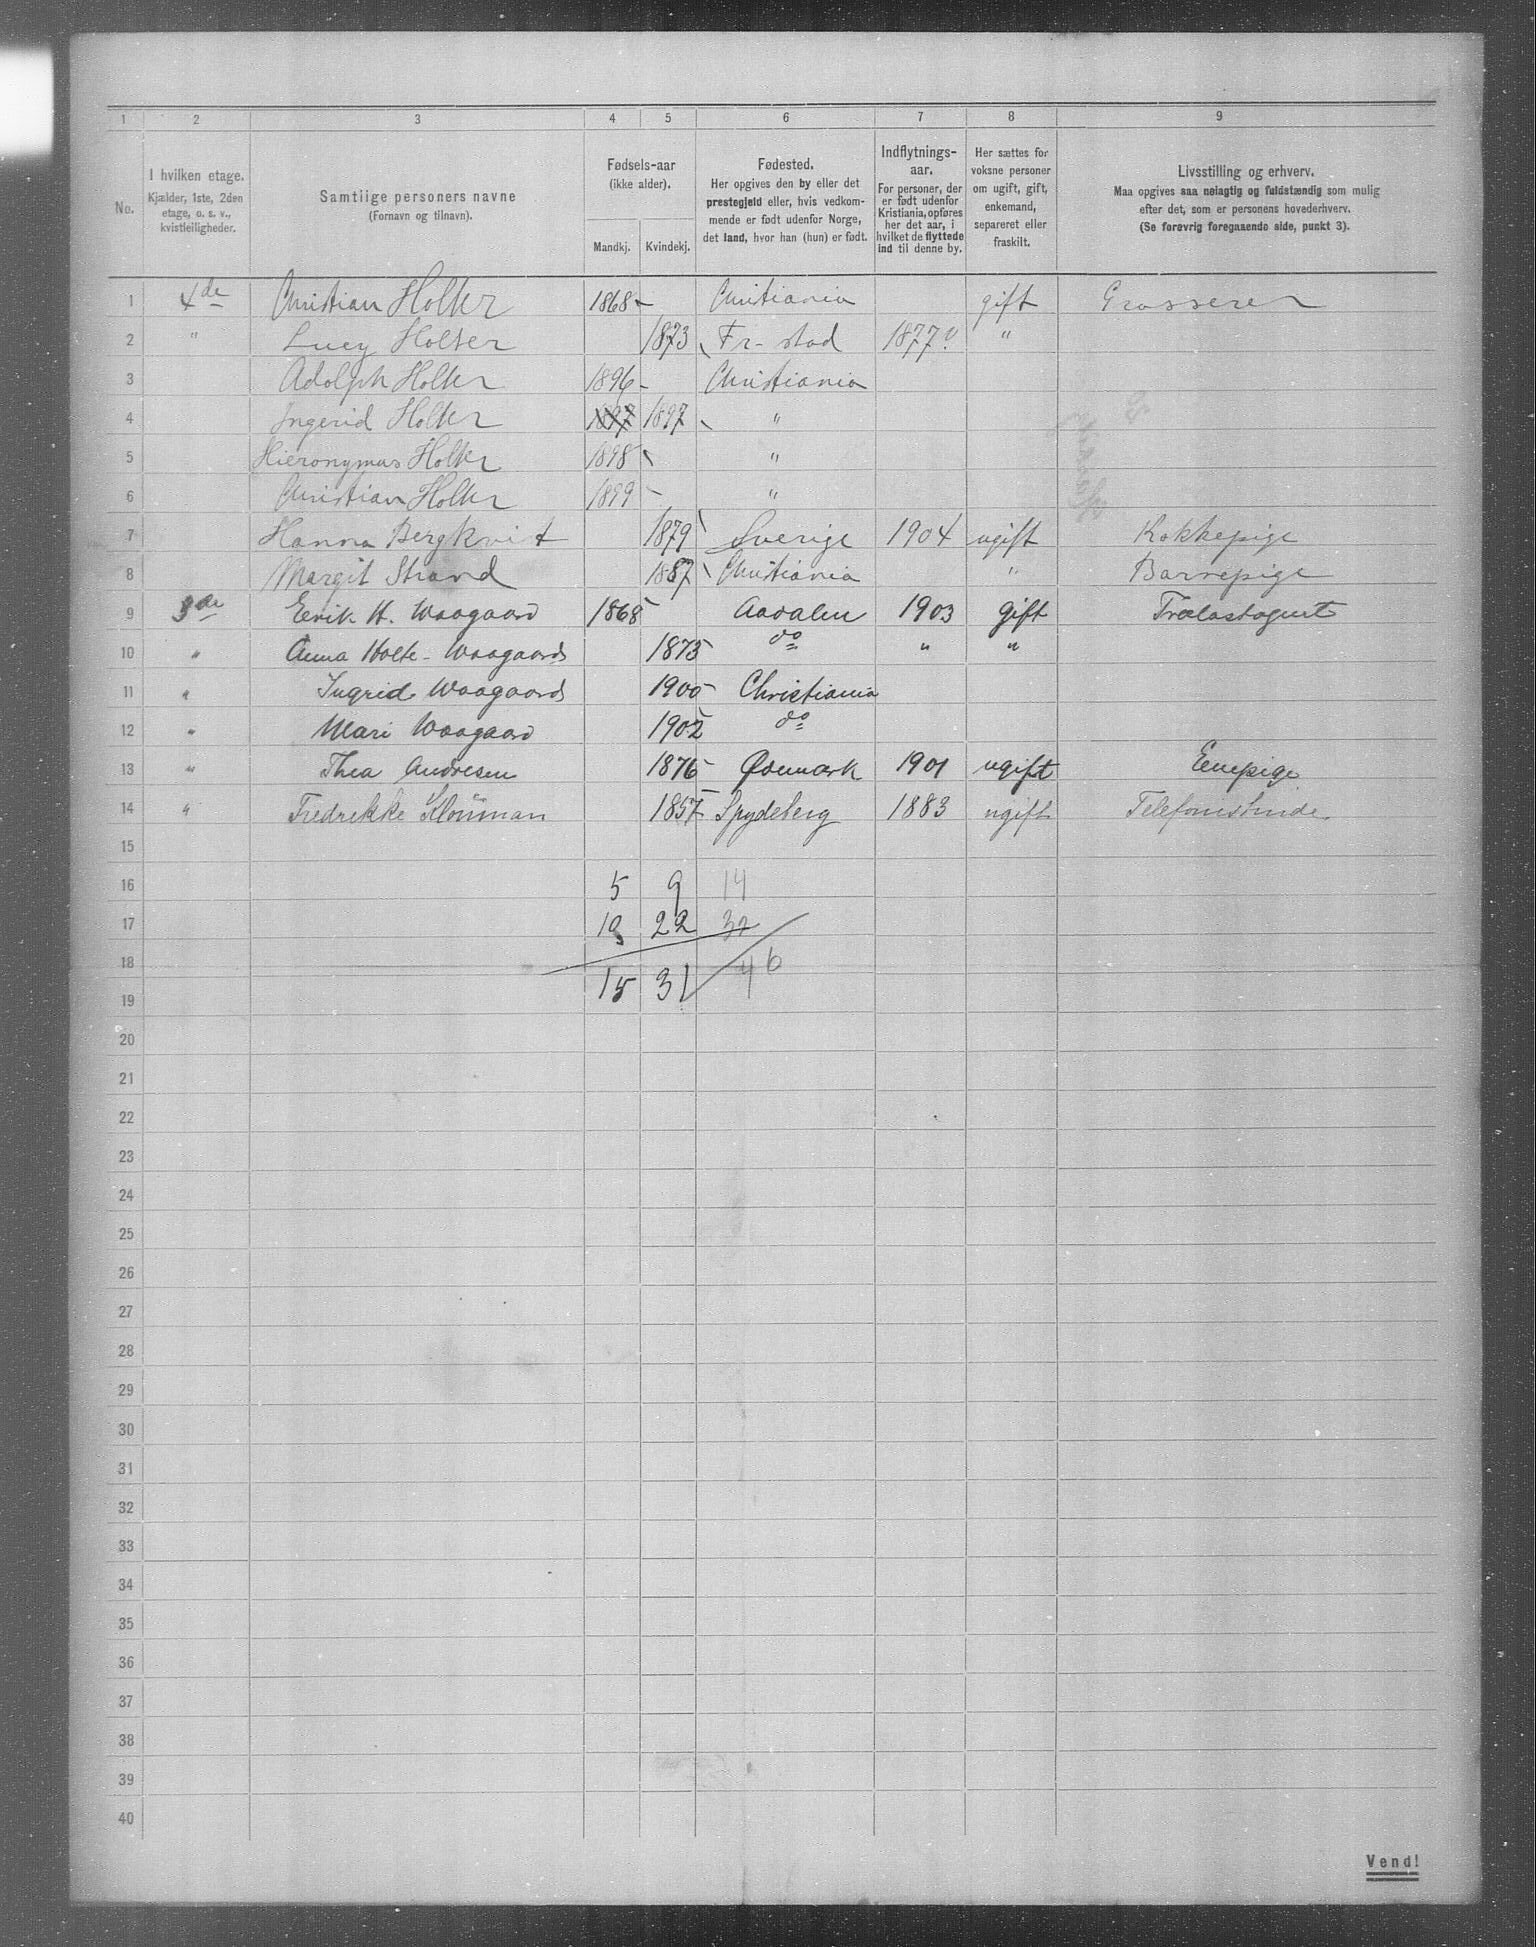 1 2 3 4 5 6 7 8 9
No.
I hvilken etage.
Kjælder, 1ste, 2den
etage, o. s. v.,
kvistleiligheder.
Samtlige personers navne
(Fornavn og tilnavn).
Fødsels-aar
(ikke alder).
Mandkj. Kvindekj.
Fødested.
Her opgives den by eller det
prestegjeld eller, hvis vedkom-
mende er født udenfor Norge,
det land, hvor han (hun) er født.
Indflytnings-
aar.
For personer, der
er født udenfor
Kristiania, opføres
her det aar, i
hvilket de flyttede
ind til denne by.
Her sættes for
voksne personer
om ugift, gift,
enkemand,
separeret eller
fraskilt.
Livsstilling og erhverv.
Maa opgives saa nøiagtig og fuldstændig som mulig
efter det, som er personens hovederhverv.
(Se forøvrig foregaaende side, punkt 3).
1 4de Christian Holter 1868 Christiania gift Grosserer
2 " Lucy Holter 1873 Fr-stad 1877? "
3 Adolph Holter 1896 Christiania
4 Ingerid Holter 1897 1897 "
5 Hieronymus Holter 1898 "
6 Christian Holter 1899 "
7 Hanna Bergkvist 1879 Sverige 1904 ugift Kokkepige
8 Margit Strand 1887 Christiania " Barnepige
9 3de Eerik H. Waagaard 1868 Aadalen 1903 gift Trælastagent
10 " Anna Holte-Waagaard 1873 do " "
11 " Ingrid Waagaard 1900 Christiania
12 " Mari Waagaard 1902 do
13 " Thea Andresen 1876 Ødemark 1901 ugift Eenepige
14 " Fredrikke Klouman 1857 Spydeberg 1883 ugift
15
16 5 9 14
17 10 22 32
18
19 15 31 46
20
21
22
23
24
25
26
27
28
29
30
31
32
33
34
35
36
37
38
39
40
Vend!